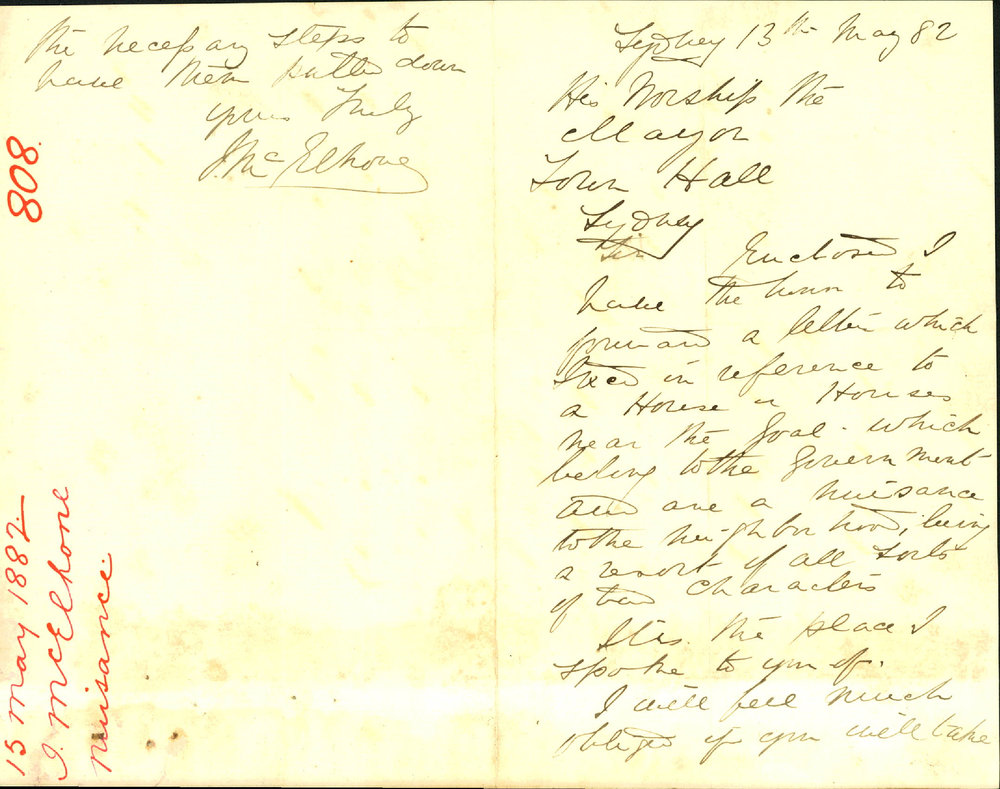 Sydney 13th May 82
His Worship the
Mayor
Town Hall
Sydney
Sir Enclosed I
have the honor to
forward a letter which
I recd in reference to
a House or Houses
near the Goal - which
belong to the Government
and are a nuisance
to the neighborhood, being
a resort of all sorts
of bad characters
It is the place I
spoke to you of.
I will feel much
obliged if you will take
the necessary steps to
have them pulled down
yours truly
J. McElhone
808.
15 May 1882.
J. McElhone
Nuisance.